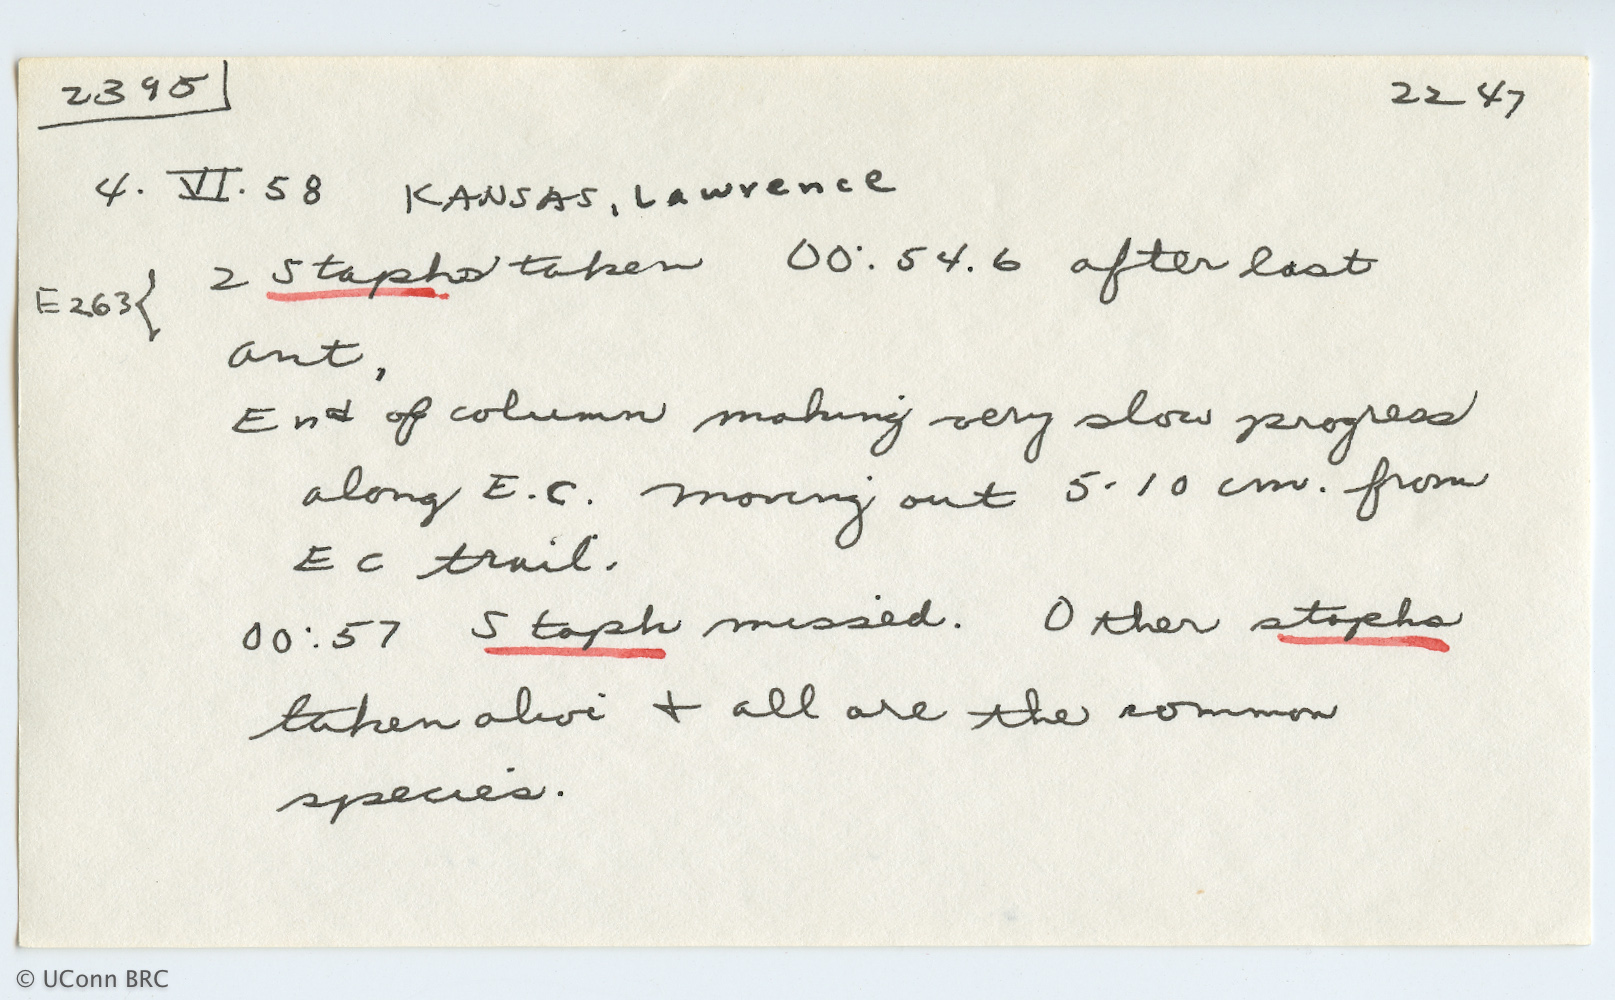 2395 2247
4. VI. 58 KANSAS, Lawrence
2 Staphs taken 00:54.6 after last
E263{
ant,
End of column making very slow progress
along E.C. moving out 5-10 cm. from
EC trail.
00:57 Staph missed. Other staphs
taken alive + all are the common
species.
© UConn BRC